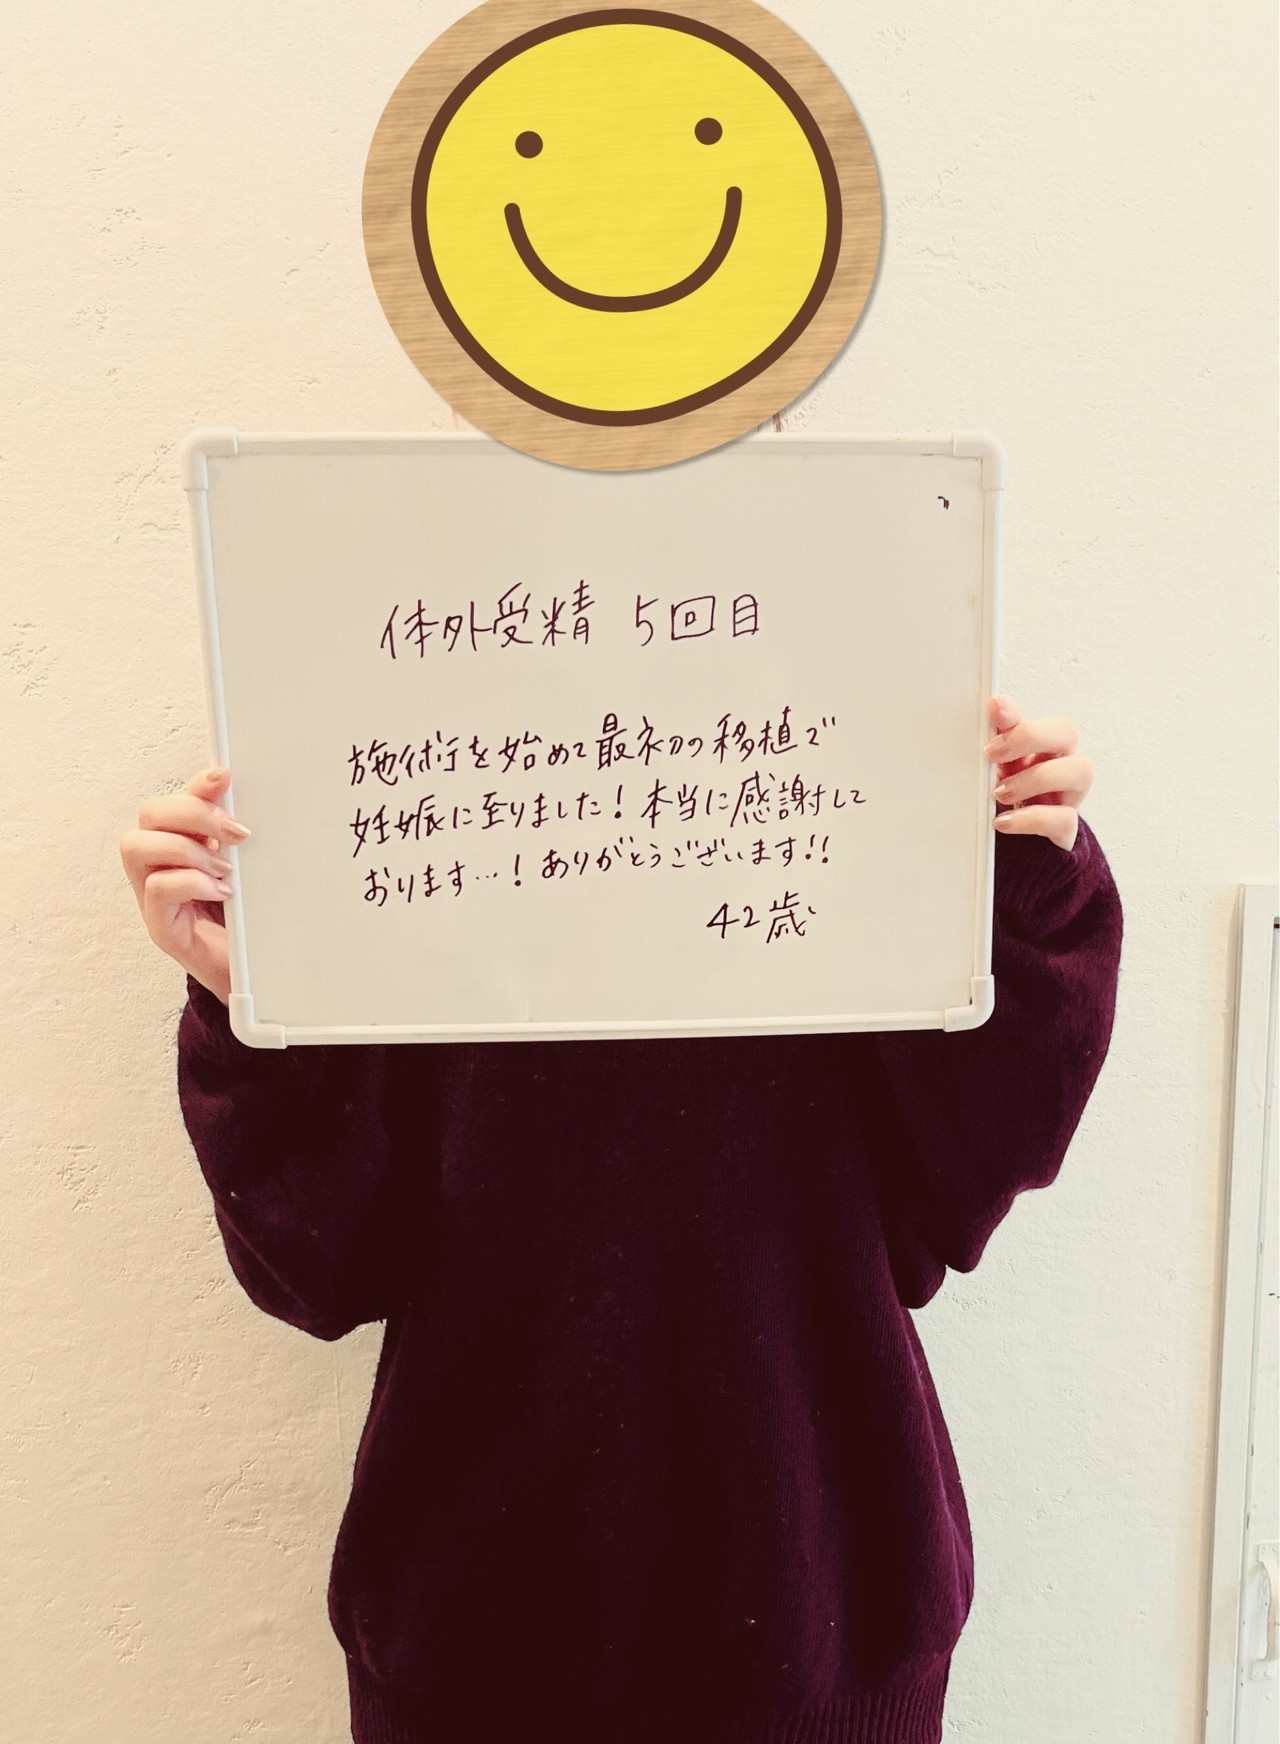 体外受精 5回目
施術を始めて最初の移植で
妊娠に至りました!本当に感謝して
おります…!ありがとうございます!!
42歳